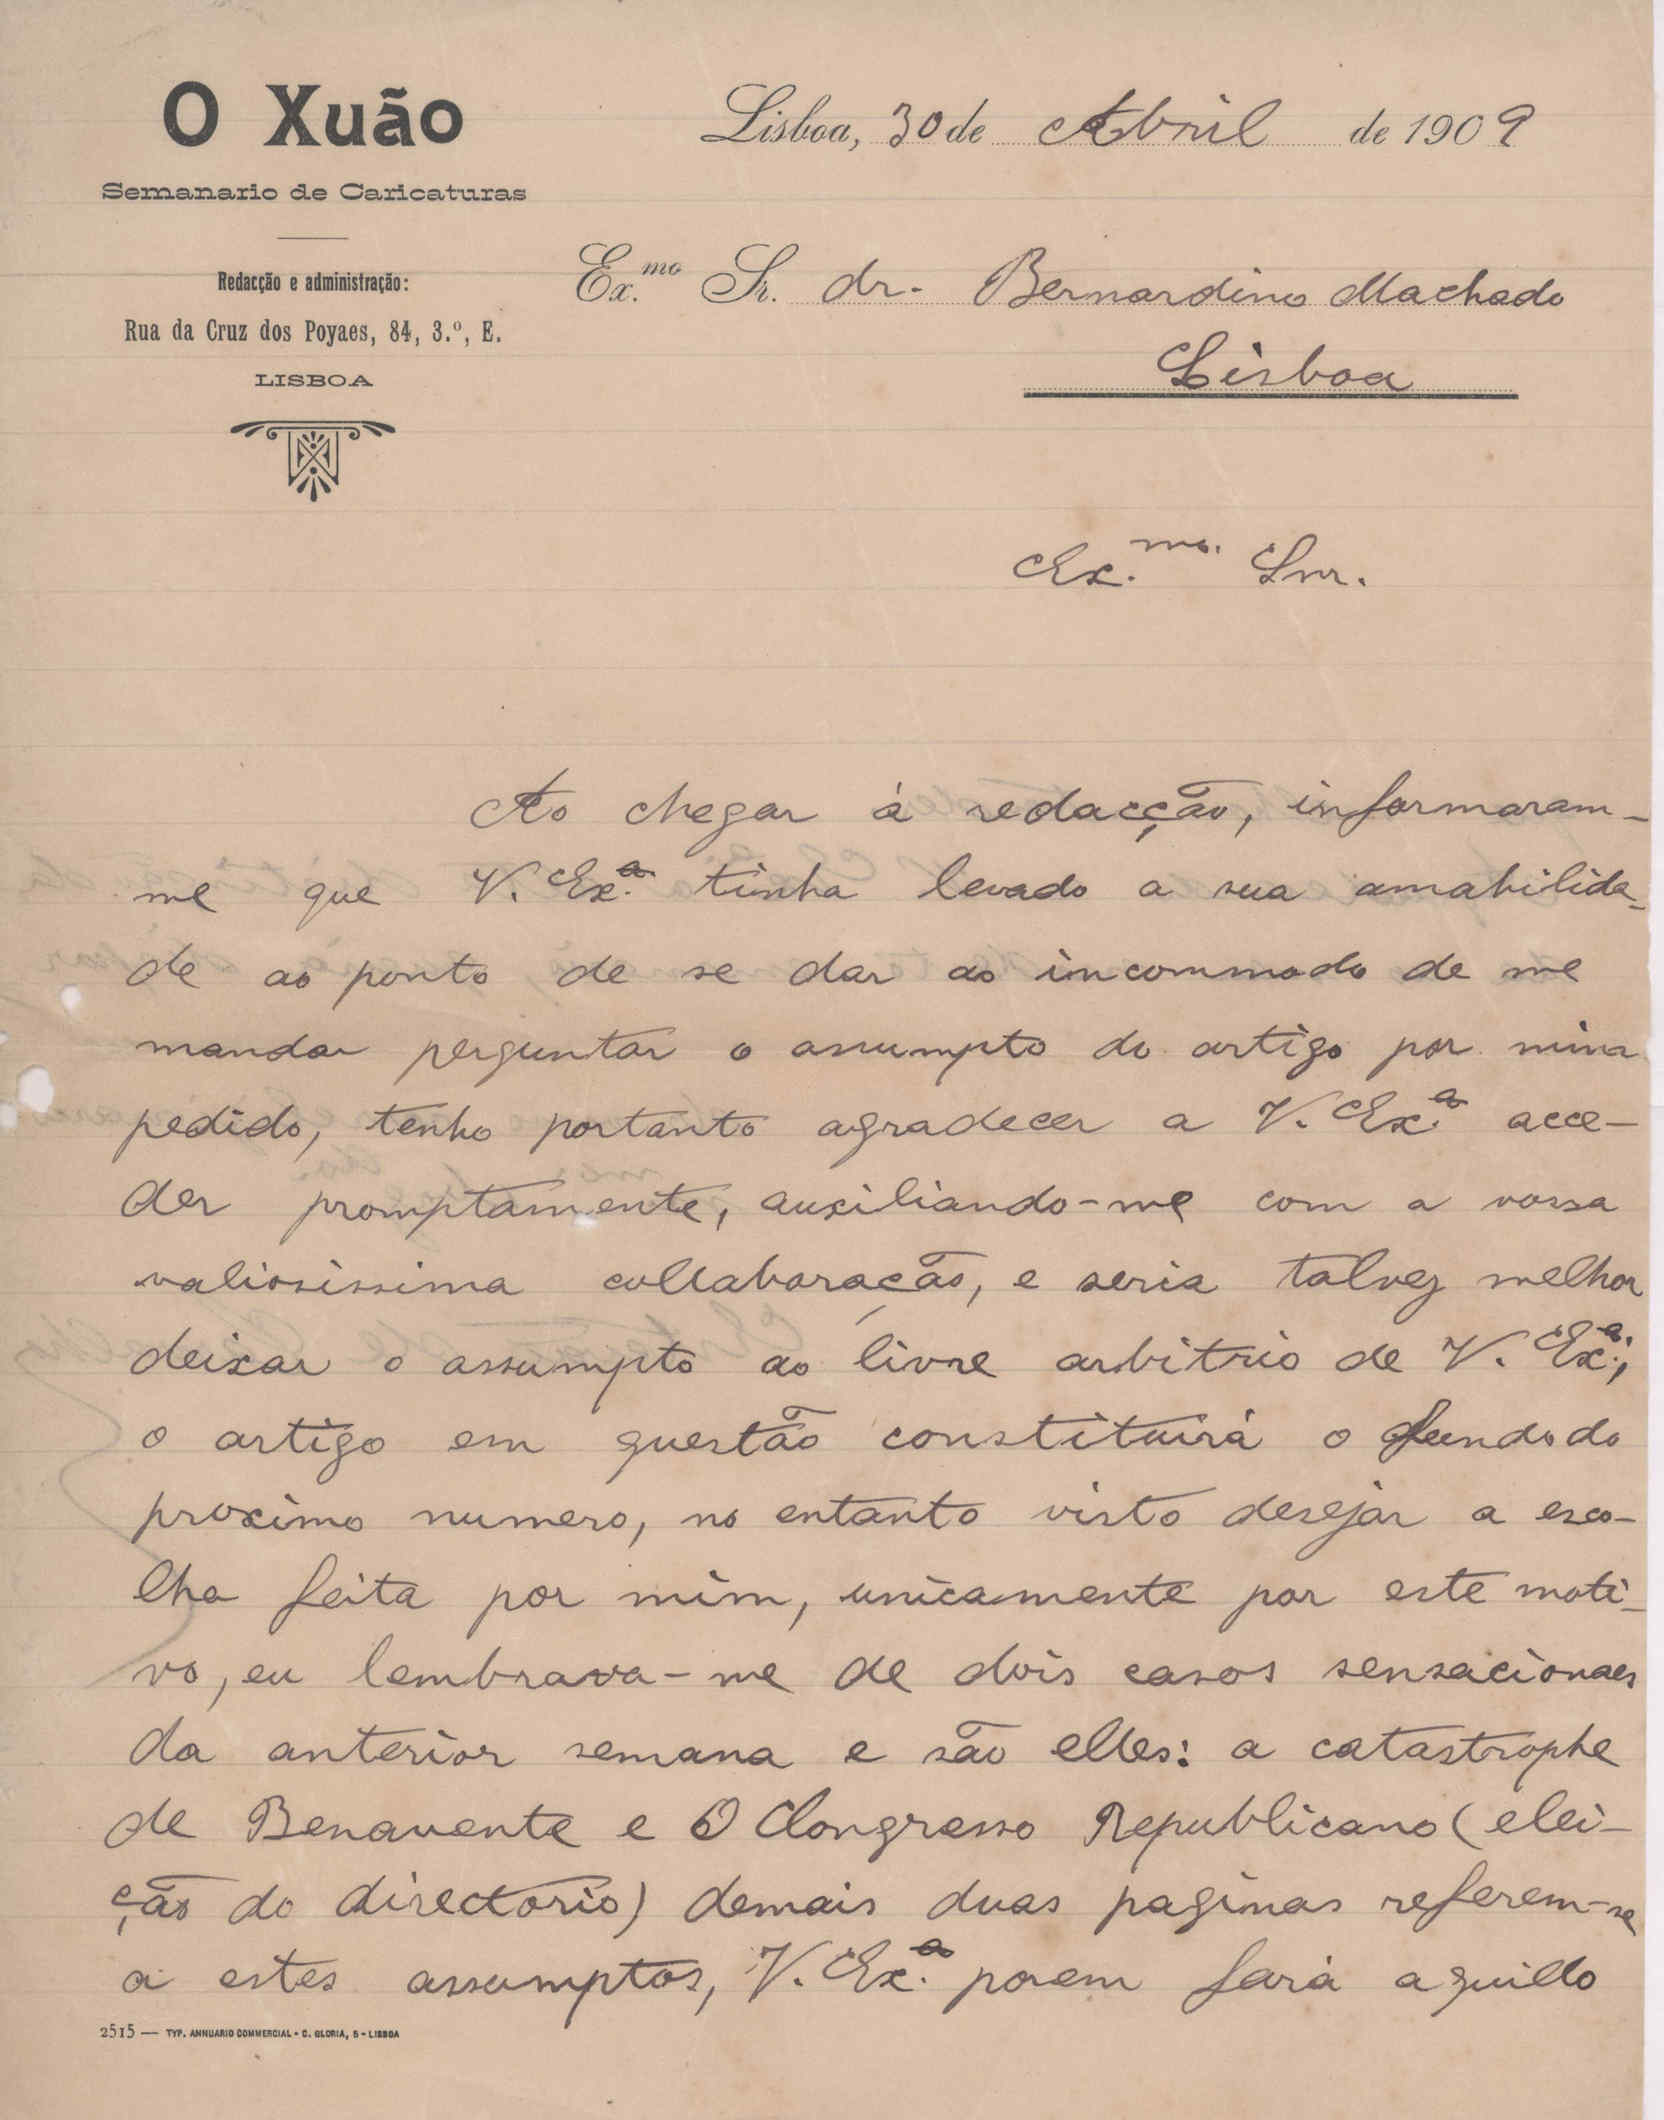 O Xuão
Semanario de Caricaturas
Redacção e administração:
Rua da Cruz dos Poyaes, 84, 3.º, E.
LISBOA
Lisboa, 30 de Abril de 1909
Ex.mo Sr. dr. Bernardino Machado
Lisboa
Ex.mo Snr.
Ao chegar á redacção, informaram-
me que V. Ex.a tinha levado a sua amabilida-
de ao ponto de se dar ao incommodo de me
mandar perguntar o assumpto do artigo por mim
pedido, tenho portanto agradecer a V. Ex.a acce-
der promptamente, auxiliando-me com a vossa
valiosissima collaboração, e seria talvez melhor
deixar o assumpto ao livre arbitrio de V. Ex.a;
o artigo em questão constituirá o fundo do
proximo numero, no entanto visto desejar a esco-
lha feita por mim, unicamente por este moti-
vo, eu lembrava-me de dois casos sensacionaes
da anterior semana e são elles: a catastrophe
de Benavente e O Congresso Republicano (elei-
ção do directorio) demais duas paginas referem-se
a estes assumptos, V. Ex.a porem fará aquillo
2515 — TYP. ANNUARIO COMMERCIAL - C. GLORIA, 5 - LISBOA